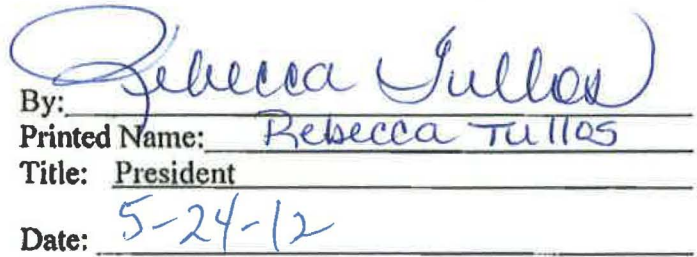 By: Rebecca Tullos
Printed Name: Rebecca Tullos
Title: President
Date: 5-24-12